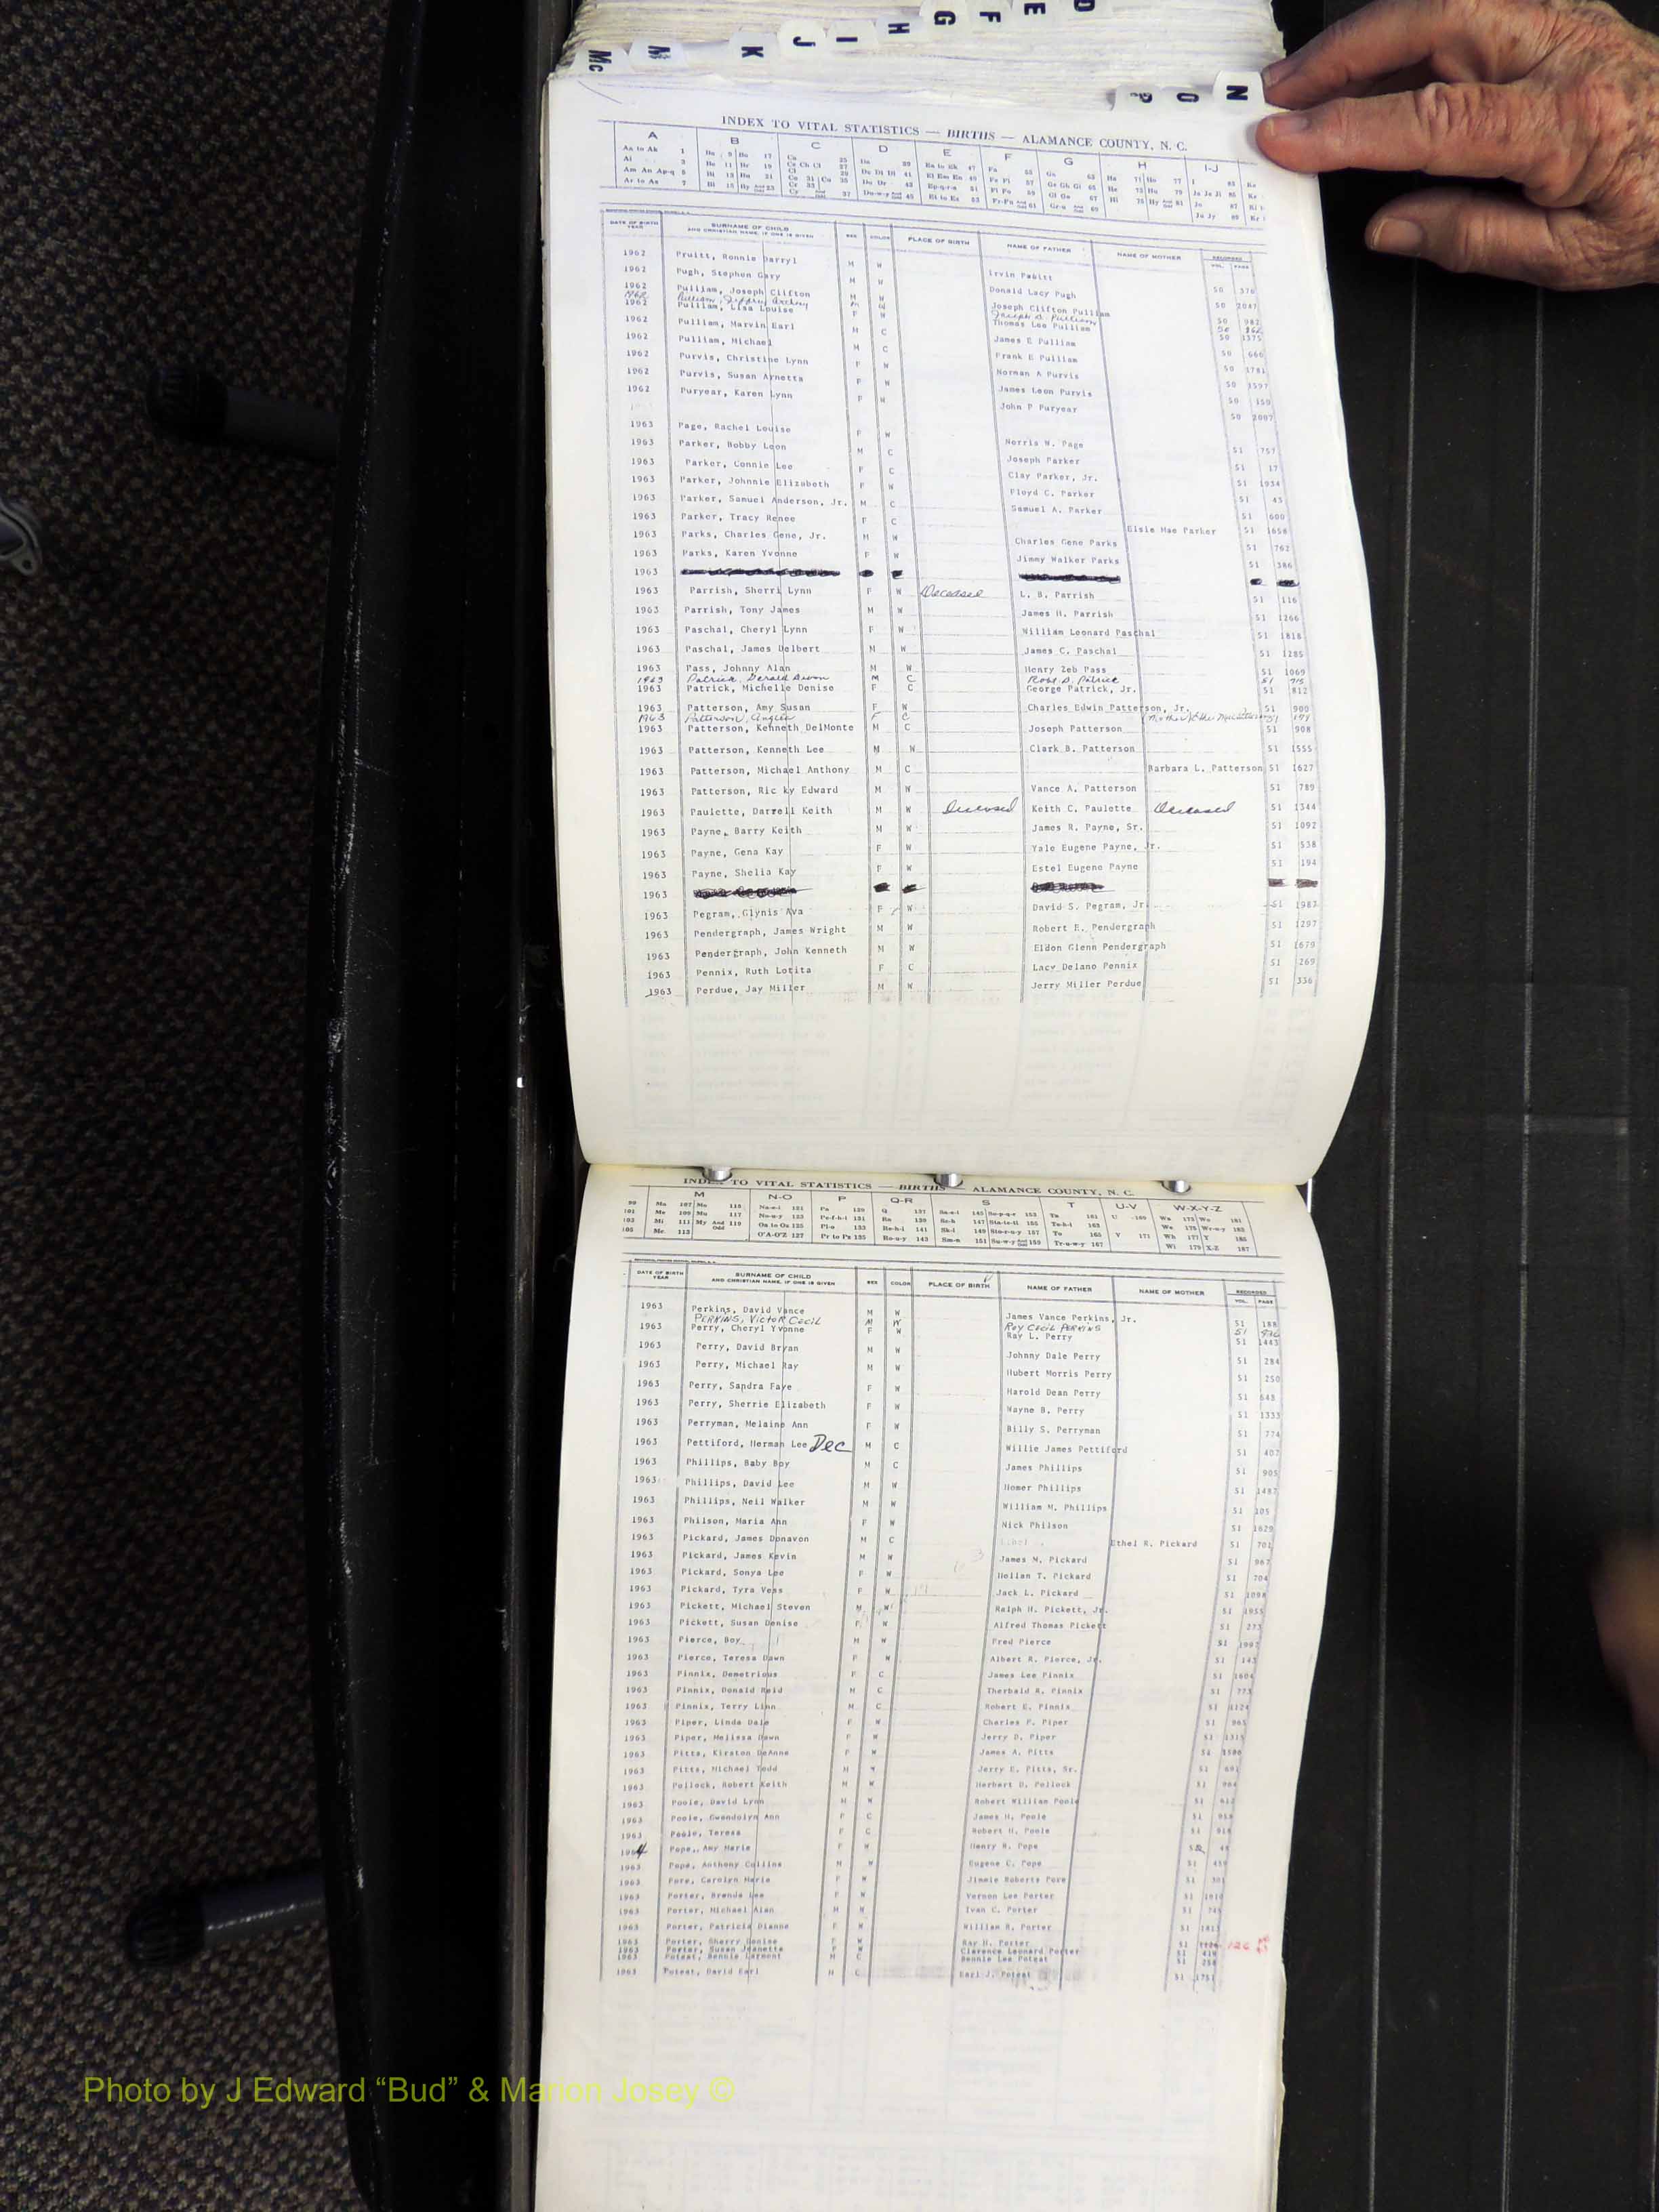 D
E
F
G
H
I
J
K
M
Mc
N
O
P
INDEX TO VITAL STATISTICS — BIRTHS — ALAMANCE COUNTY, N. C.
A B C D E F G H I-J
DATE OF BIRTH YEAR SURNAME OF CHILD AND CHRISTIAN NAME, IF ONE IS GIVEN SEX COLOR PLACE OF BIRTH NAME OF FATHER NAME OF MOTHER RECORDED VOL. PAGE
1962 Pruitt, Ronnie Darryl M W Irvin 50 376
1962 Pugh, Stephen Gary M W Donald Lacy Pugh 50 2047
1962 Pulliam, Joseph Clifton M W Joseph Clifton Pulliam 50 982
1962 Pulliam, Jeffery Anthony M W Joseph B. Pulliam 50
1962 Pulliam, Lisa Louise F W Thomas Lee Pulliam 50 1375
1962 Pulliam, Marvin Earl M C James E Pulliam 50 666
1962 Pulliam, Michael M C Frank E Pulliam 50 1781
1962 Purvis, Christine Lynn F W Norman A Purvis 50 1597
1962 Purvis, Susan Arnetta F W James Leon Purvis 50 150
1962 Puryear, Karen Lynn F W John P Puryear 50 2007
1963 Page, Rachel Louise F W Norris W. Page 51 757
1963 Parker, Bobby Leon M C Joseph Parker 51 17
1963 Parker, Connie Lee F C Clay Parker, Jr. 51 1034
1963 Parker, Johnnie Elizabeth F W Floyd C. Parker 51 45
1963 Parker, Samuel Anderson, Jr. M C Samuel A. Parker 51 600
1963 Parker, Tracy Renee F C Elsie Mae Parker 51 1658
1963 Parks, Charles Gene, Jr. M W Charles Gene Parks 51 762
1963 Parks, Karen Yvonne F W Jimmy Walker Parks 51 386
1963
1963 Parrish, Sherri Lynn F W Deceased L. B. Parrish 51 116
1963 Parrish, Tony James M W James H. Parrish 51 1266
1963 Paschal, Cheryl Lynn F W William Leonard Paschal 51 1818
1963 Paschal, James Delbert M W James C. Paschal 51 1285
1963 Pass, Johnny Alan M W Henry Zeb Pass 51 1069
1963 Patrick, Gerald Devon M C Robt. D. Patrick 51 715
1963 Patrick, Michelle Denise F C George Patrick, Jr. 51 812
1963 Patterson, Amy Susan F W Charles Edwin Patterson, Jr. 51 900
1963 Patterson, Angela F C 51 191
1963 Patterson, Kenneth DelMonte M C Joseph Patterson 51 908
1963 Patterson, Kenneth Lee M W Clark B. Patterson 51 1555
1963 Patterson, Michael Anthony M C Barbara L. Patterson 51 1627
1963 Patterson, Ric ky Edward M W Vance A. Patterson 51 789
1963 Paulette, Darrell Keith M W Deceased Keith C. Paulette Deceased 51 1344
1963 Payne, Barry Keith M W James R. Payne, Sr. 51 1092
1963 Payne, Gena Kay F W Yale Eugene Payne, Jr. 51 538
1963 Payne, Shelia Kay F W Estel Eugene Payne 51 194
1963
1963 Pegram, Glynis Ava F W David S. Pegram, Jr. 51 1987
1963 Pendergraph, James Wright M W Robert E. Pendergraph 51 1297
1963 Pendergraph, John Kenneth M W Eldon Glenn Pendergraph 51 1679
1963 Pennix, Ruth Lotita F C Lacy Delano Pennix 51 269
1963 Perdue, Jay Miller M W Jerry Miller Perdue 51 336
INDEX TO VITAL STATISTICS — BIRTHS — ALAMANCE COUNTY, N. C.
M N-O P Q-R S T U-V W-X-Y-Z
DATE OF BIRTH YEAR SURNAME OF CHILD AND CHRISTIAN NAME, IF ONE IS GIVEN SEX COLOR PLACE OF BIRTH NAME OF FATHER NAME OF MOTHER RECORDED VOL. PAGE
1963 Perkins, David Vance M W James Vance Perkins, Jr. 51 188
PERKINS, VICTOR CECIL M W ROY CECIL PERKINS 51
1963 Perry, Cheryl Yvonne F W Ray L. Perry 51 1443
1963 Perry, David Bryan M W Johnny Dale Perry 51 284
1963 Perry, Michael Ray M W Hubert Morris Perry 51 250
1963 Perry, Sandra Faye F W Harold Dean Perry 51 643
1963 Perry, Sherrie Elizabeth F W Wayne B. Perry 51 1333
1963 Perryman, Melaine Ann F W Billy S. Perryman 51 774
1963 Pettiford, Herman Lee Dec M C Willie James Pettiford 51 407
1963 Phillips, Baby Boy M C James Phillips 51 905
1963 Phillips, David Lee M W Homer Phillips 51 1487
1963 Phillips, Neil Walker M W William M. Phillips 51 105
1963 Philson, Maria Ann F W Nick Philson 51 1629
1963 Pickard, James Donavon M C Ethel R. Pickard 51 701
1963 Pickard, James Kevin M W James M. Pickard 51 967
1963 Pickard, Sonya Lee F W Hollan T. Pickard 51 704
1963 Pickard, Tyra Vess F W Jack L. Pickard 51 1098
1963 Pickett, Michael Steven M W Ralph H. Pickett, Jr. 51 1955
1963 Pickett, Susan Denise F W Alfred Thomas Pickett 51 273
1963 Pierce, Boy M W Fred Pierce 51 1992
1963 Pierce, Teresa Dawn F W Albert R. Pierce, Jr. 51 143
1963 Pinnix, Demetrious F C James Lee Pinnix 51 1604
1963 Pinnix, Donald Reid M C Therbald R. Pinnix 51 773
1963 Pinnix, Terry Linn M C Robert E. Pinnix 51 1124
1963 Piper, Linda Dale F W Charles F. Piper 51
1963 Piper, Melissa Dawn F W Jerry D. Piper 51 1315
1963 Pitts, Kirston DeAnne F W James A. Pitts 51 1580
1963 Pitts, Michael Todd M W Jerry E. Pitts, Sr. 51
1963 Pollock, Robert Keith M W Herbert D. Pollock 51
1963 Poole, David Lynn M W Robert William Poole 51
1963 Poole, Gwendolyn Ann F C James H. Poole 51
1963 Poole, Teresa F C Robert H. Poole 51
1964 Pope, Amy Marie F W Henry B. Pope
1963 Pope, Anthony Collins M W Eugene C. Pope 51
1963 Pore, Carolyn Marie F W Jimmie Roberts Pore 51
1963 Porter, Brenda Lee F W Vernon Lee Porter 51
1963 Porter, Michael Alan M W Ivan C. Porter 51
1963 Porter, Patricia Dianne F W William R. Porter 51
1963 Porter, Sherry Denise F W Ray H. Porter 51 126
1963 Porter, Susan Jeanette F W Clarence Leonard Porter 51
1963 Poteat, Bennie Larmont M C Bennie Lee Poteat 51
1963 Poteat, David Earl M C Earl J. Poteat 51 1751
Photo by J Edward “Bud” & Marion Josey ©